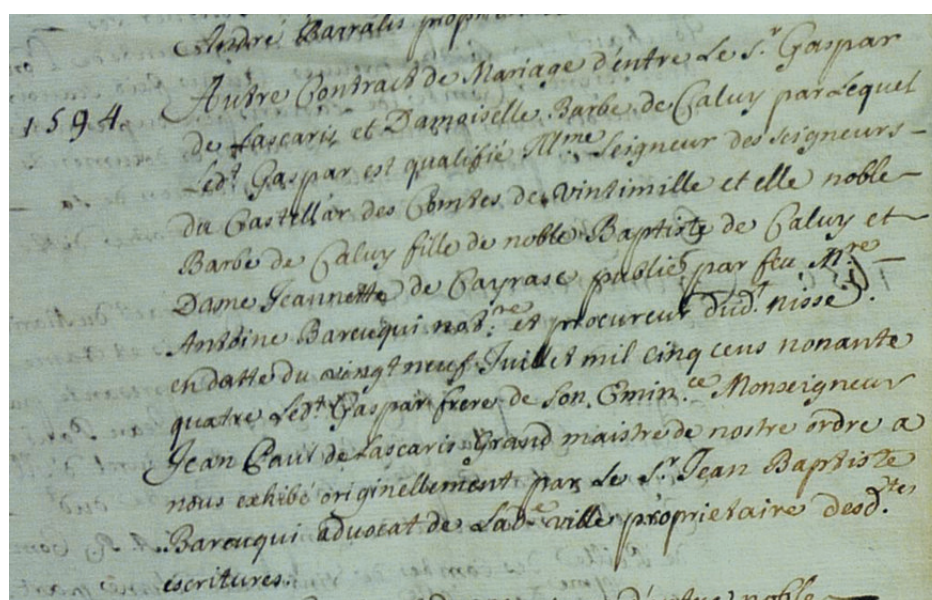 André Barralis
1594. Autre Contract de Mariage d'entre Le S.r Gaspar
de Lascaris et Damoiselle Barbe de Caluy par Lequel
Led.t Gaspar est qualifié Ill.me Seigneur des seigneurs
du Castellar des Comtes de Vintimille et elle noble
Barbe de Caluy fille de noble Baptiste de Caluy et
Dame Jeannette de publié par feu M.re
Antoine Bareuqui not.re et procureur dud.t nisse
en datte du vingt neuf Juillet mil cinq cens nonante
quatre Led.t Gaspar frere de son Emin.ce Monseigneur
Jean Paul de Lascaris Grand maistre de nostre ordre a
nous exhibé originellement par Le S.r Jean Baptiste
Bareuqui advocat de Lad.e ville proprietaire desd.tes
escritures.
noble